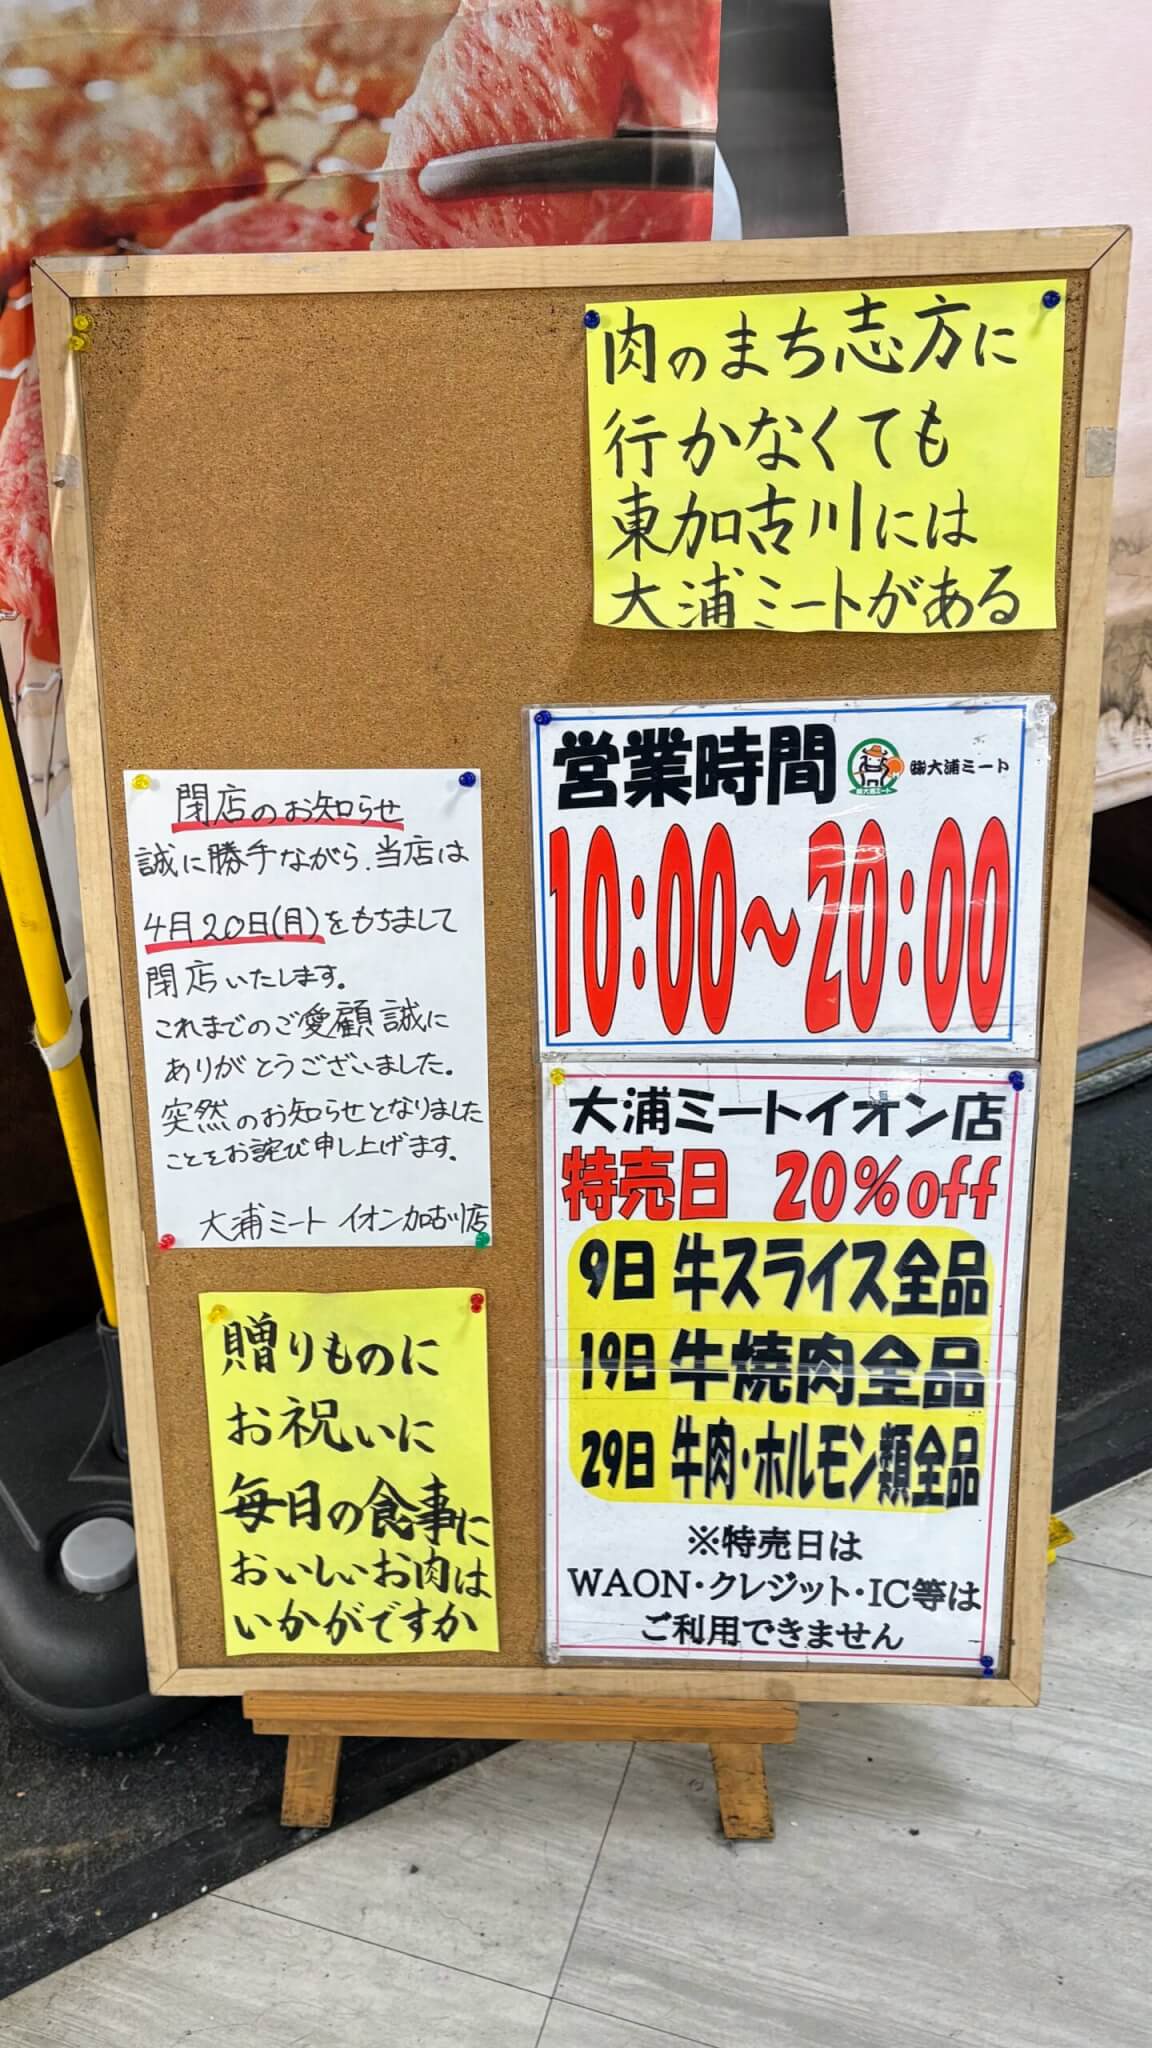 肉のまち志方に
行かなくても
東加古川には
大浦ミートがある
営業時間
㈱大浦ミート
10:00～20:00
閉店のお知らせ
誠に勝手ながら、当店は
4月20日(月)をもちまして
閉店いたします。
これまでのご愛顧誠に
ありがとうございました。
突然のお知らせとなりました
ことをお詫び申し上げます。
大浦ミート イオン加古川店
大浦ミートイオン店
特売日 20%off
9日 牛スライス全品
19日 牛焼肉全品
29日 牛肉・ホルモン類全品
※特売日は
WAON・クレジット・IC等は
ご利用できません
贈りものに
お祝いに
毎日の食事に
おいしいお肉は
いかがですか